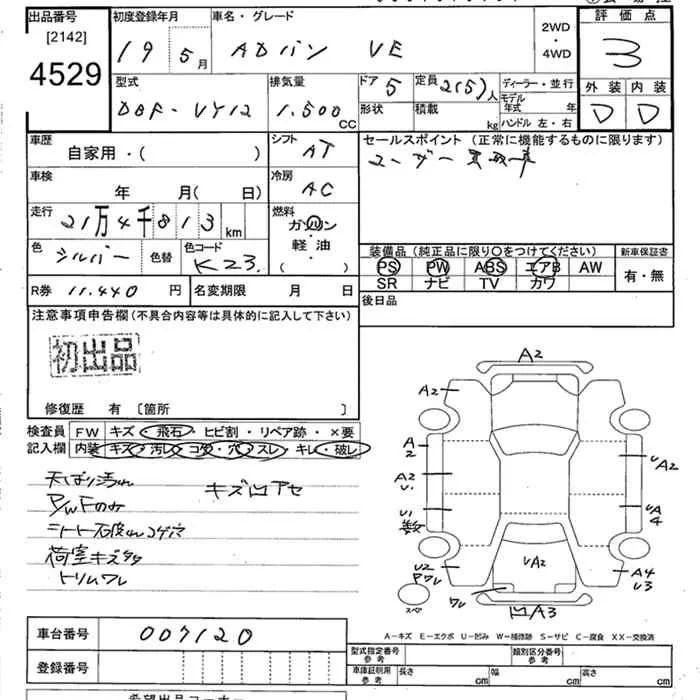 出品番号
[2142]
4529
初度登録年月
19年5月
車名・グレード
ADバン VE
2WD
・
4WD
評価点
3
型式
DBF-VY12
排気量
1.500
CC
ドア
5
形状
定員
2(5)人
積載
kg
ディーラー・並行
モデル年式 年
ハンドル 左・右
外装 内装
D D
車歴
自家用・( )
シフト
AT
セールスポイント (正常に機能するものに限ります)
ユーザー買取車
車検
年 月( 日)
冷房
AC
走行
21万4千813 km
燃料
ガソリン
・
軽油
( )
色
シルバー
色替
色コード
K23
装備品(純正品に限り○をつけてください)
PS PW ABS エアB AW
SR ナビ TV カワ
新車保証書
有・無
R券 11.440 円
名変期限 月 日
後日品
注意事項申告欄(不具合内容等は具体的に記入して下さい)
初出品
修復歴 有 〔箇所 〕
検査員 FW キズ・飛石・ヒビ割・リペア跡・×要
記入欄 内装 キズ・汚レ・コゲ・穴・スレ・キレ・破レ
天ばり汚れ
キズ凹アセ
P/WFのみ
シート破れコゲ穴
荷室キズ多
トリムワレ
A2
A2
A2
A2
U1
U1
数
U2
Pワレ
スペ
UA2
UA4
A4
U3
UA2
ワレ
凹A3
A-キズ E-エクボ U-凹み W-補修跡 S-サビ C-腐食 XX-交換済
車台番号
007120
登録番号
型式指定番号
参考
類別区分番号
参考
車庫証明用
参考
長さ cm
幅 cm
高さ cm
希望出品コーナー